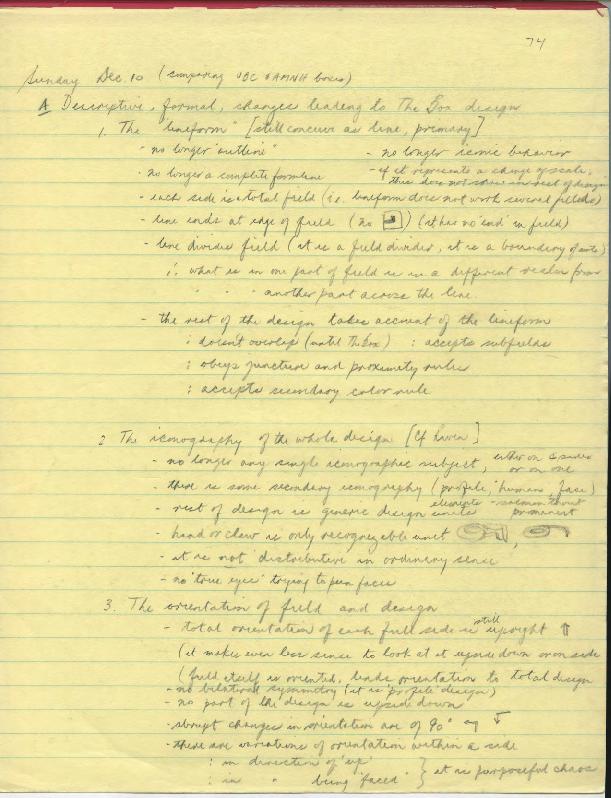 74
Sunday Dec 10 (comparing UBC & AMNH boxes)
A Descriptive, formal, changes leading to The Box design
1. The "lineform" [still conceive as line, primary]
- no longer "outline" - no longer iconic behavior
- no longer a complete formline - if it represents a change of scale,
this does not occur in rest of design
- each side is a total field (i.e. lineform does not work several fields)
- line ends at edge of field (no ) (it has no 'end' in field)
- line divides field (it is a field divider, it is a boundary of sorts)
∴ what is in one part of field is in a different realm from
" " " another part across the line.
- the rest of the design takes account of the lineform
: doesn't overlap (until The Box) : accepts subfields
: obeys juncture and proximity rules
: accepts secondary color rule
2 The iconography of the whole design [Cf Haven]
- no longer any single iconographic subject, either on 4 sides
or on one
- there is some secondary iconography (profile, 'human' face)
- rest of design is generic design units elements - salmon trout
prominent
- hand or claw is only recognizable unit ,
- it is not 'distributive' in ordinary sense
- no 'true eyes' trying to pun faces
3. The orientation of field and design
- total orientation of each full side is still upright ⇑
(it makes even less sense to look at it upside down or on side
(field itself is oriented, lends orientation to total design
- no bilateral symmetry (it is 'profile' design)
- no part of the design is upside down
- abrupt changes in orientation are of 90°
- there are variations of orientation within a side
: in direction of 'up'
: in " being 'faced' } it is purposeful chaos